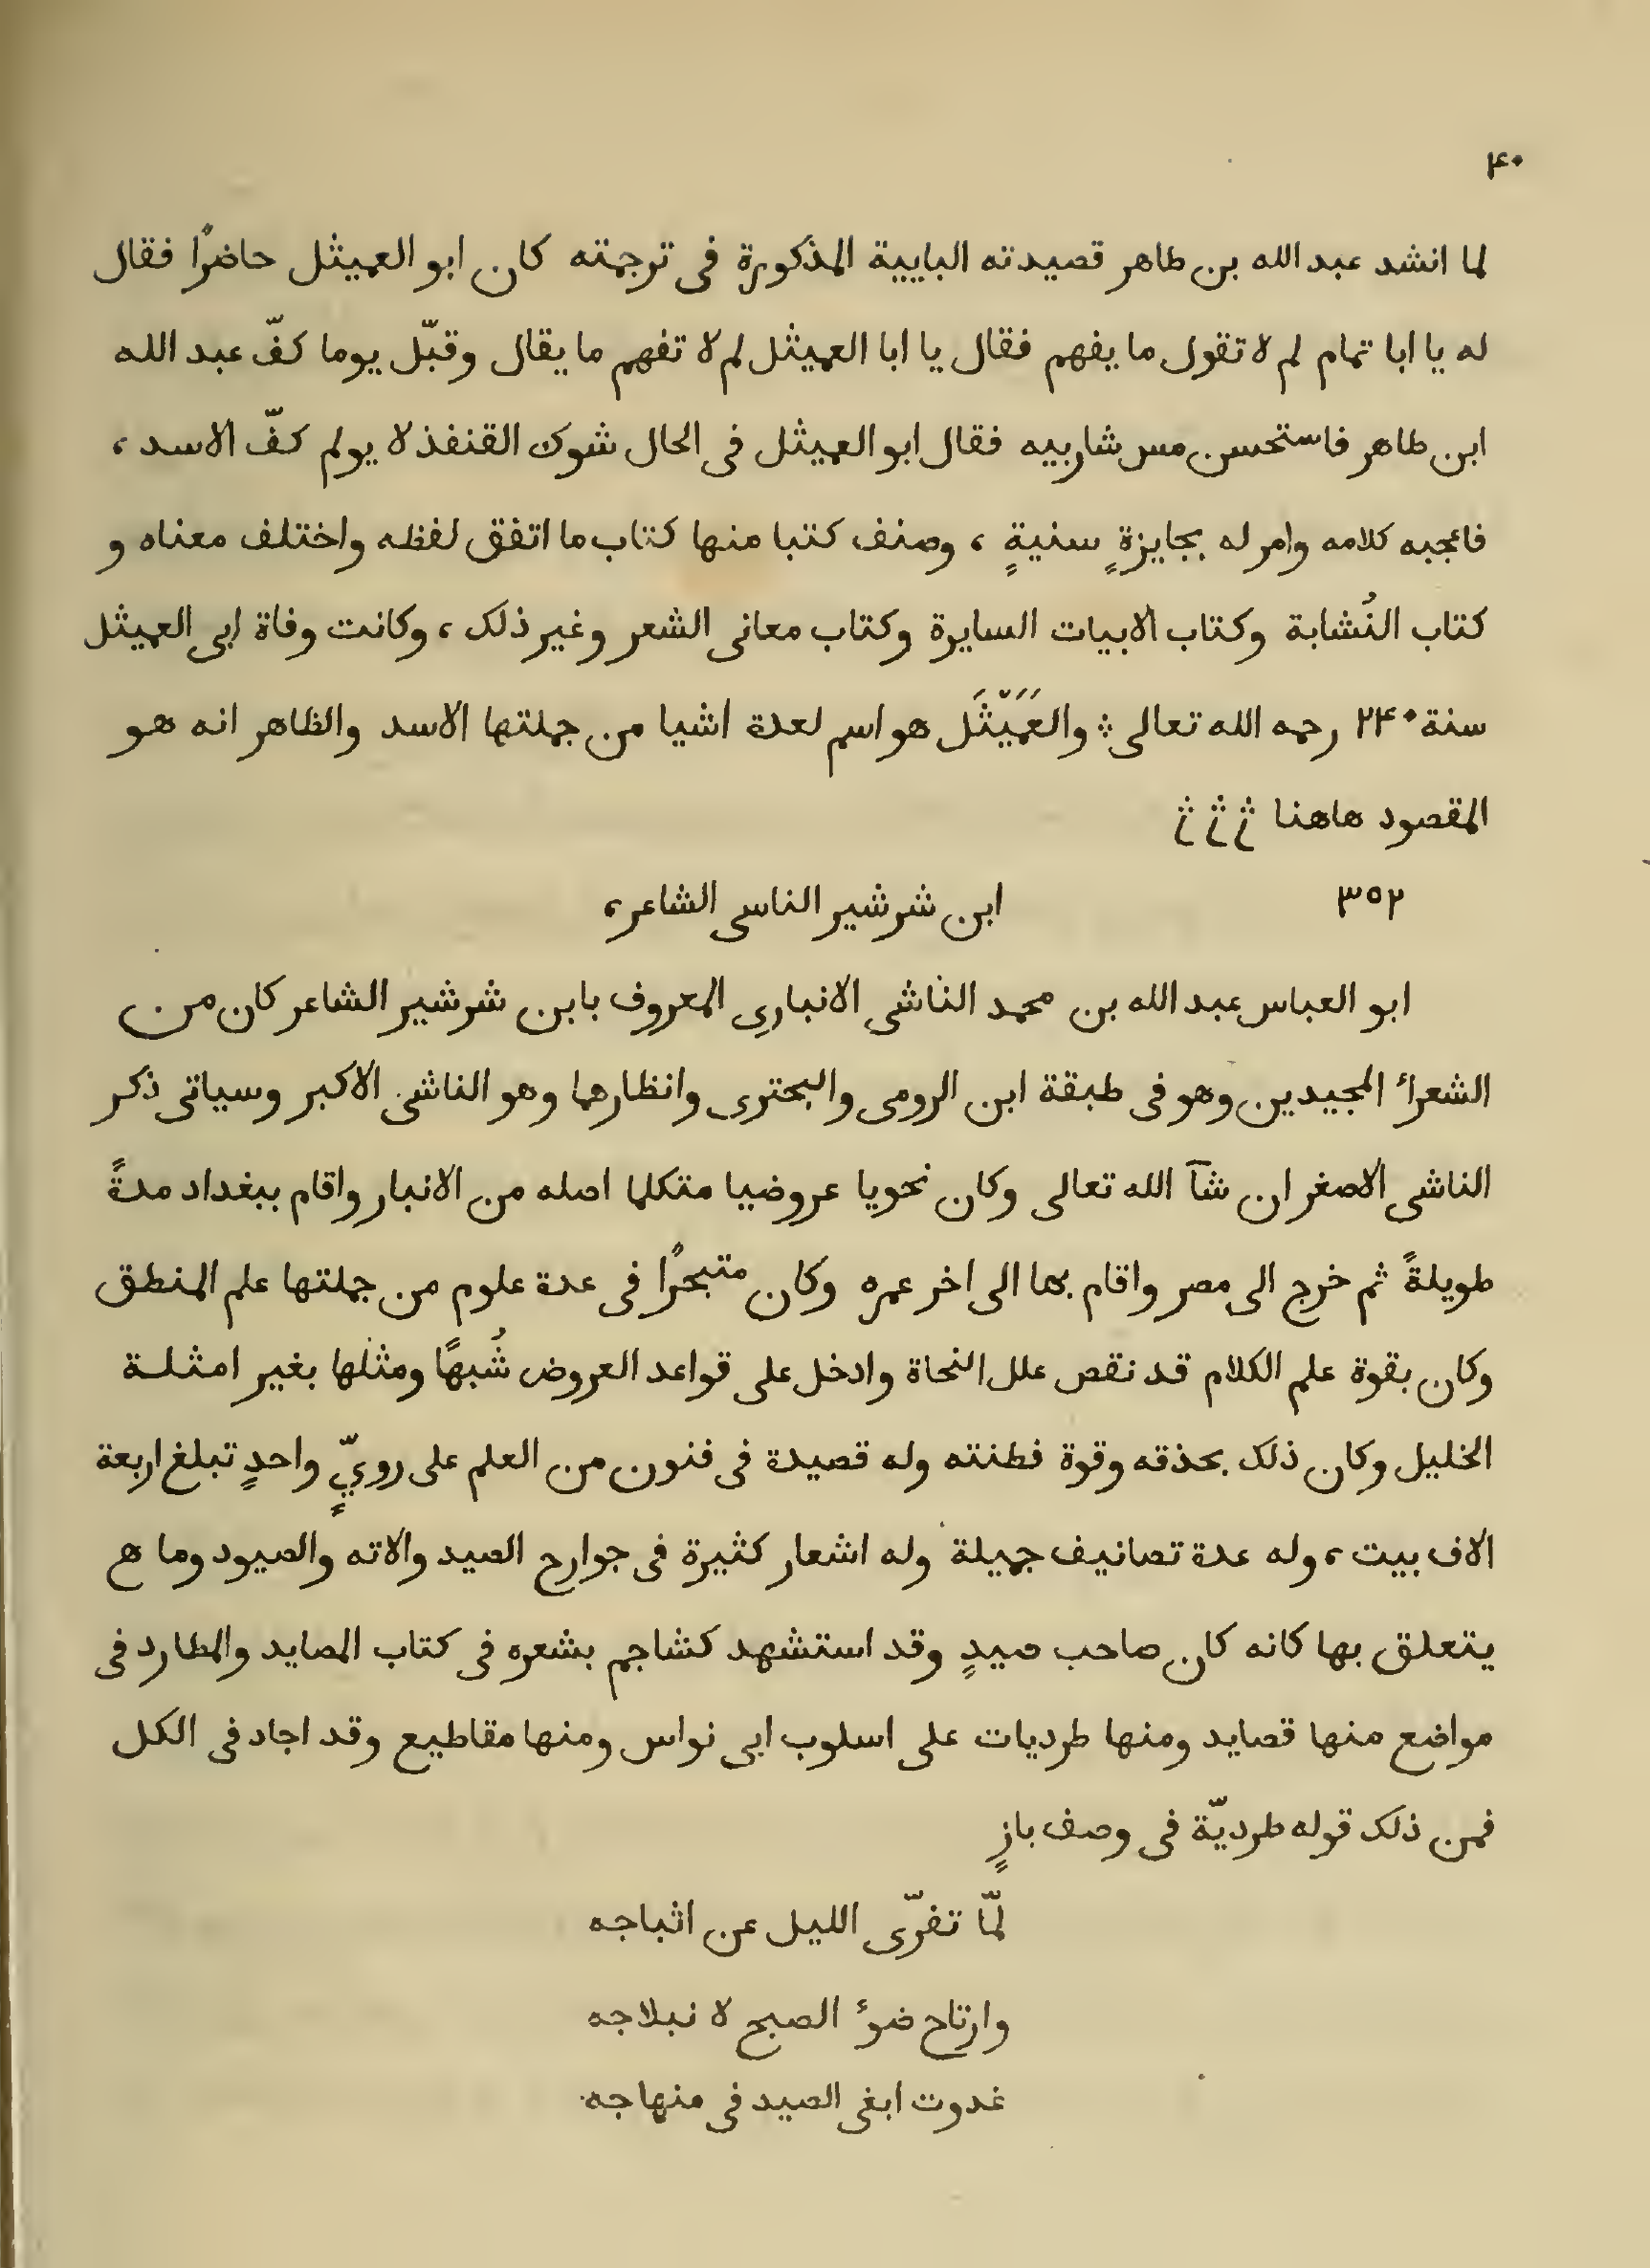 ۴۰
لما انشد عبد الله بن طاهر قصيدته البايية المذكورة فى ترجمته كان ابو العميثل حاضرًا فقال
له يا ابا تمام لم لا تقول ما يفهم فقال يا ابا العميثل لم لا تفهم ما يقال وقبّل يوما كفّ عبد الله
ابن طاهر فاستحسن مس شاربيه فقال ابو العميثل فى الحال شوك القنفذ لا يولم كفّ الاسد ،
فاعجبه كلامه وامر له بجايزةٍ سنيةٍ ، وصنف كتبا منها كتاب ما اتفق لفظه واختلف معناه و
كتاب النُشابة وكتاب الابيات السايرة وكتاب معانى الشعر وغير ذلك ، وكانت وفاة ابى العميثل
سنة ۲۴۰ رحمه الله تعالى ؞ والعَمَيْثَل هو اسم لعدة اشيا من جملتها الاسد والظاهر انه هو
المقصود هاهنا
۳٥۲ ابن شرشير الناسى الشاعر ،
ابو العباس عبد الله بن محمد الناشى الانبارى المعروف بابن شرشير الشاعر كان من
الشعرأ المجيدين وهو فى طبقة ابن الرومى والبحترى وانظارهما وهو الناشى الاكبر وسياتى ذكر
الناشى الاصغر ان شآ الله تعالى وكان نحويا عروضيا متكلما اصله من الانبار واقام ببغداد مدةً
طويلةً ثم خرج الى مصر واقام بها الى اخر عمره وكان متبحرًا فى عدة علوم من جملتها علم المنطق
وكان بقوة علم الكلام قد نقص علل النحاة وادخل على قواعد العروض شُبهًا ومثلها بغير امثلة
الخليل وكان ذلك بحذقه وقوة فطنته وله قصيدة فى فنون من العلم على رويٍّ واحدٍ تبلغ اربعة
الاف بيت ، وله عدة تصانيف جميلة وله اشعار كثيرة فى جوارح الصيد والاته والصيود وما ه‍
يتعلق بها كانه كان صاحب صيدٍ وقد استشهد كشاجم بشعره فى كتاب المصايد والمطارد فى
مواضع منها قصايد ومنها طرديات على اسلوب ابى نواس ومنها مقاطيع وقد اجاد فى الكل
فمن ذلك قوله طرديّة فى وصف بازٍ
لمّا تفرّى الليل عن اثباجه
وارتاح ضوٴ الصبح لا نبلاجه
غدوت ابغى الصيد فى منهاجه